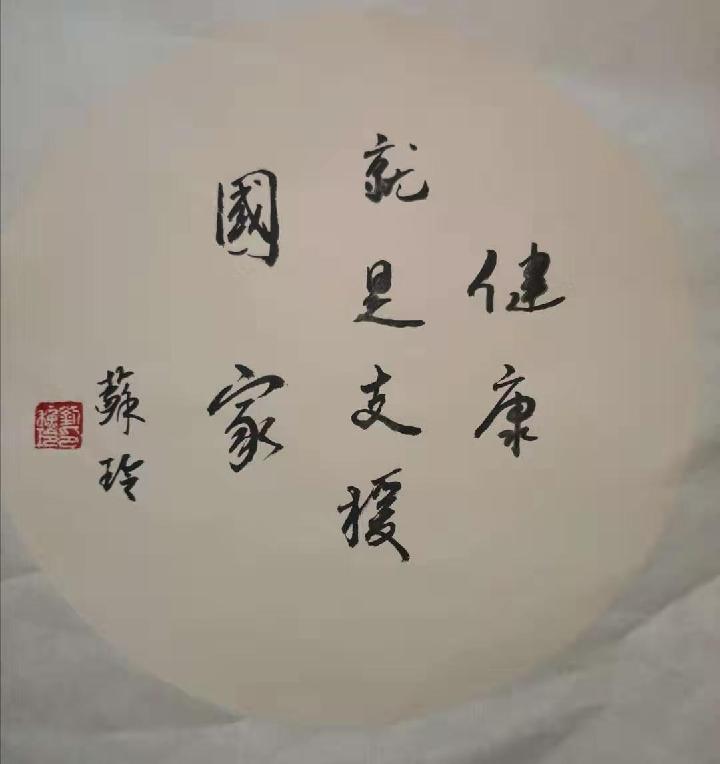 健康
就是支援
國家
蘇玲